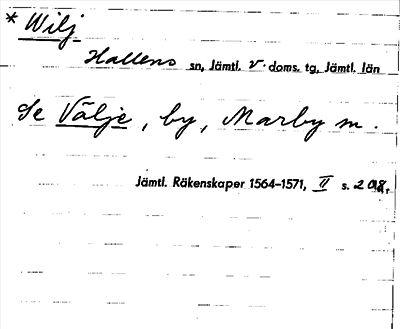 * Wilj
Hallens sn, Jämtl. v. doms. tg, Jämtl. län
Se Välje, by, Marby sn.
Jämtl. Räkenskaper 1564–1571, II s. 208.